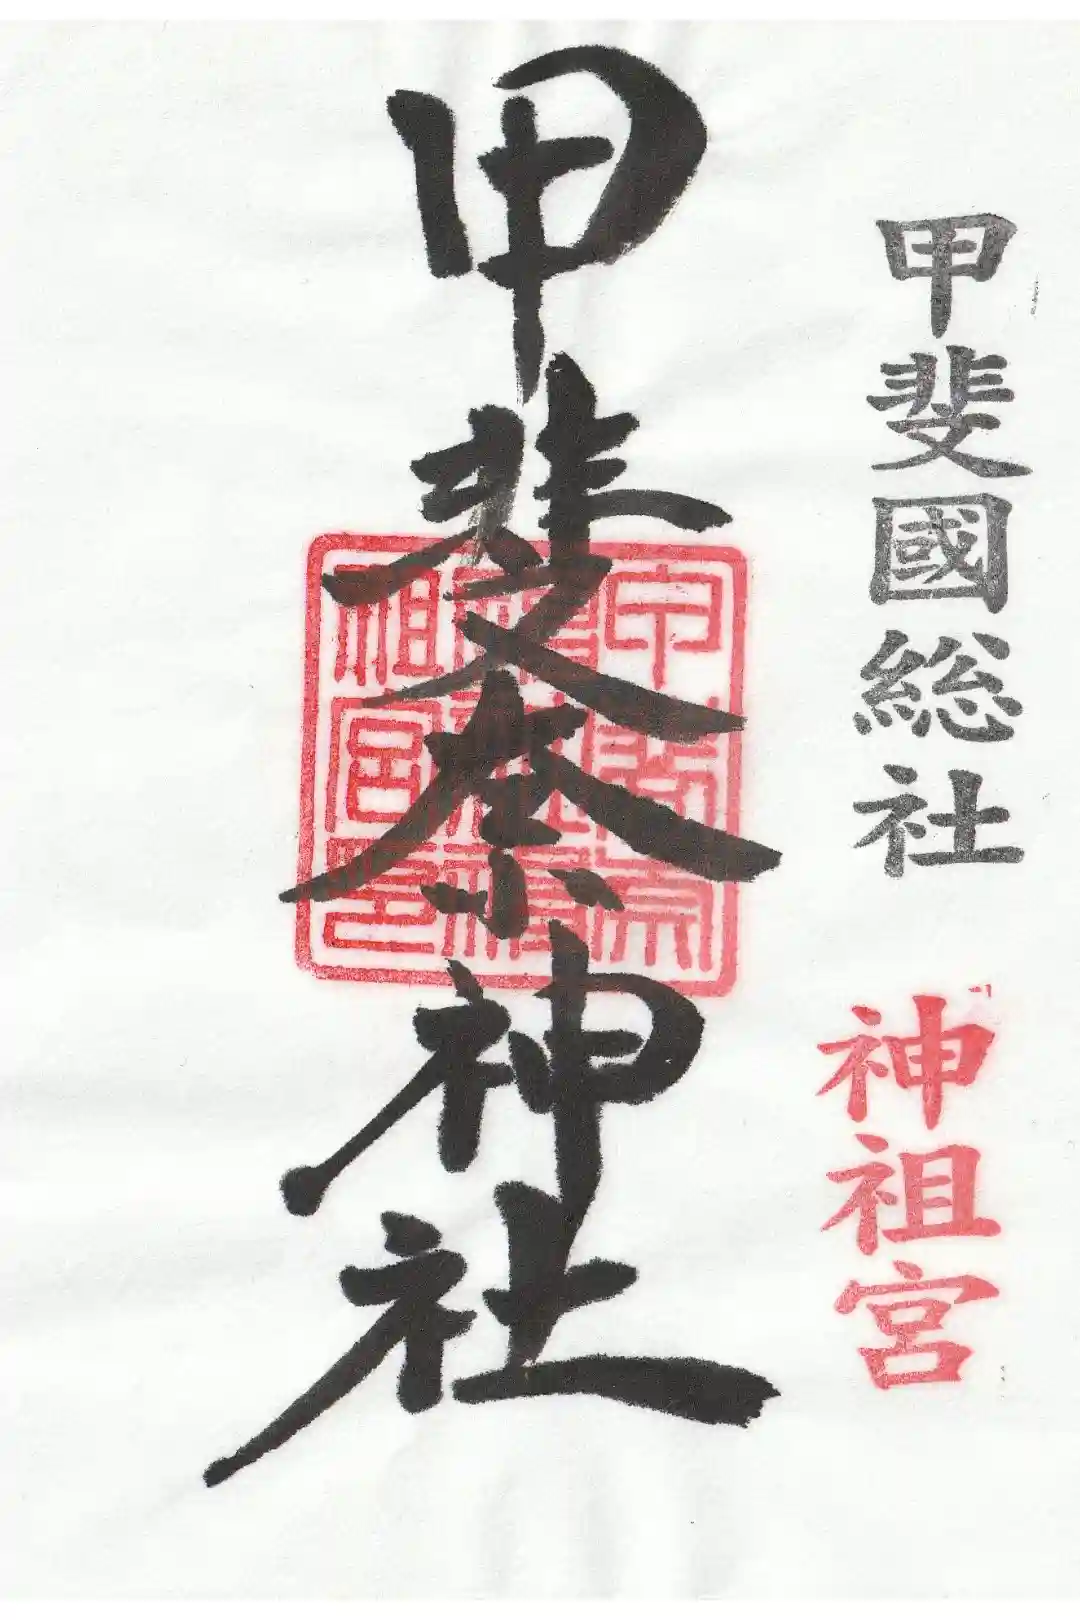 甲斐國総社
神祖宮
甲斐奈神社
甲斐奈
神社神
祖宮印